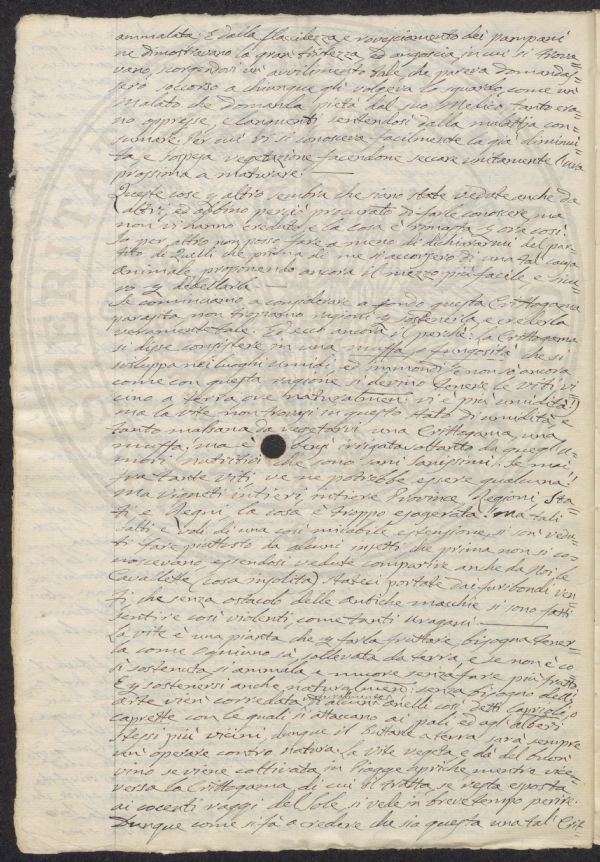 ammalata: E dalla flacidezza e rovesciamento dei pampani
ne dimostravano la gran tristezza ed angoscia in cui si trova=
vano, scorgendosi un avvilimento tale, che pareva domandas=
sero soccorso a chiunque gli volgeva lo sguardo, come un
Malato che domanda pietà dal suo Medico, tanto era=
no oppresse, e languenti sentendosi dalla malattia con=
sumare. Per cui vi si conosceva facilmente la già diminui=
ta, e sospesa vegetazione facendone seccare unitamente l'uva
prossima a maturare.
Queste cose, altro sembra che siano state vedute anche da
altri, ed abbino perciò procurato di farle conoscere, ma
non vi hanno creduto, e la cosa è rimasta ora così.
Io per altro non posso fare a meno di dichiararmi del par=
tito di quelli che prima di me si accorsero di una tal causa
animale, proponendo ancora il mezzo più facile e sicu=
ro debellarla.
Se cominciamo a considerare a fondo questa Crittogama
parasita non troviamo ragioni sostenerla, e crederla
veramente tale. Ed ecco ancora il perchè: la Crittogama
si disse consistere in una muffa, o fungosità che si
sviluppa nei luoghi umidi, ed immondi, e non so ancora
come con questa ragione si devino tenere le viti vi
cino a terra ove naturalmen: vi è più umidità!
ma la vite non trovasi in questo stato di umidità, e
tanto malsana da vegetarvi una Crittogama, una
muffa! ma è bensì irrigata soltanto da quegli u=
mori nutritivi che sono sani sanissimi. Se mai,
fra tante viti, ve ne potrebbe essere qualcuna!
ma vigneti intieri, intiere Province, Regioni, Sta=
ti, e Regni la cosa è troppo esagerata! Ma tali
salti, e voli di una così mirabile estensione, si son vedu=
ti fare piuttosto da alcuni insetti che prima non si co=
noscevano, essendosi vedute comparire anche da Noi le
Cavallette (cosa insolita) stateci portate dai furibondi ven=
ti, che senza ostacolo delle antiche macchie si sono fatti
sentire così violenti come tanti uragani.
La vite è una pianta che farla fruttare, bisogna tener=
la come ognuno sà sollevata da terra, e se non è co=
sì sostenuta si ammala, e muore senza fare più frutto.
E sostenersi anche naturalmen: senza bisogno dell'
arte vien corredata di alcuni anelli così detti capriole, o
caprette con le quali si attaccano ai pali ed agl'alberi
stessi più vicini, dunque il buttarle a terra sarà sempre
un operare contro natura. La vite vegeta e dà del buon
vino se viene coltivata in Piagge apriche, mentre vice=
versa la Crittogama, di cui si tratta, se resta esposta
ai cocenti raggi del Sole si vede in breve tempo perire.
Dunque come si fà a credere che sia questa una tal Crit